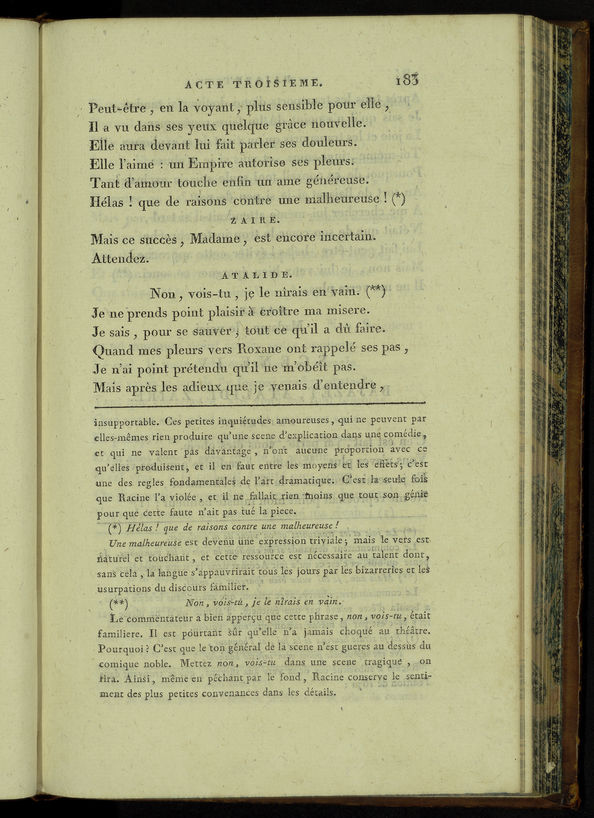 ACTE TROISIEME. 183
Peut-être, en la voyant, plus sensible pour elle,
Il a vu dans ses yeux quelque grâce nouvelle.
Elle aura devant lui fait parler ses douleurs.
Elle l'aime : un Empire autorise ses pleurs.
Tant d'amour touche enfin un ame généreuse.
Hélas ! que de raisons contre une malheureuse ! (*)
ZAIRE.
Mais ce succès, Madame, est encore incertain.
Attendez.
ATALIDE.
Non, vois-tu, je le nîrais en vain. (**)
Je ne prends point plaisir à croître ma misere.
Je sais, pour se sauver, tout ce qu'il a dû faire.
Quand mes pleurs vers Roxane ont rappelé ses pas,
Je n'ai point prétendu qu'il ne m'obéît pas.
Mais après les adieux que je venais d'entendre,
insupportable. Ces petites inquiétudes amoureuses, qui ne peuvent par
elles-mêmes rien produire qu'une scene d'explication dans une comédie,
et qui ne valent pas davantage, n'ont aucune proportion avec ce
qu'elles produisent, et il en faut entre les moyens et les effets; c'est
une des regles fondamentales de l'art dramatique. C'est la seule fois
que Racine l'a violée, et il ne fallait rien moins que tout son génie
pour que cette faute n'ait pas tué la piece.
(*) Hélas ! que de raisons contre une malheureuse !
Une malheureuse est devenu une expression triviale; mais le vers est
naturel et touchant, et cette ressource est nécessaire au talent dont,
sans cela, la langue s'appauvrirait tous les jours par les bizarreries et les
usurpations du discours familier.
(**) Non, vois-tu, je le nîrais en vain.
Le commentateur a bien apperçu que cette phrase, non, vois-tu, était
familiere. Il est pourtant sûr qu'elle n'a jamais choqué au théâtre.
Pourquoi ? C'est que le ton général de la scene n'est gueres au dessus du
comique noble. Mettez non, vois-tu dans une scene tragique, on
rira. Ainsi, même en péchant par le fond, Racine conserve le senti-
ment des plus petites convenances dans les détails.